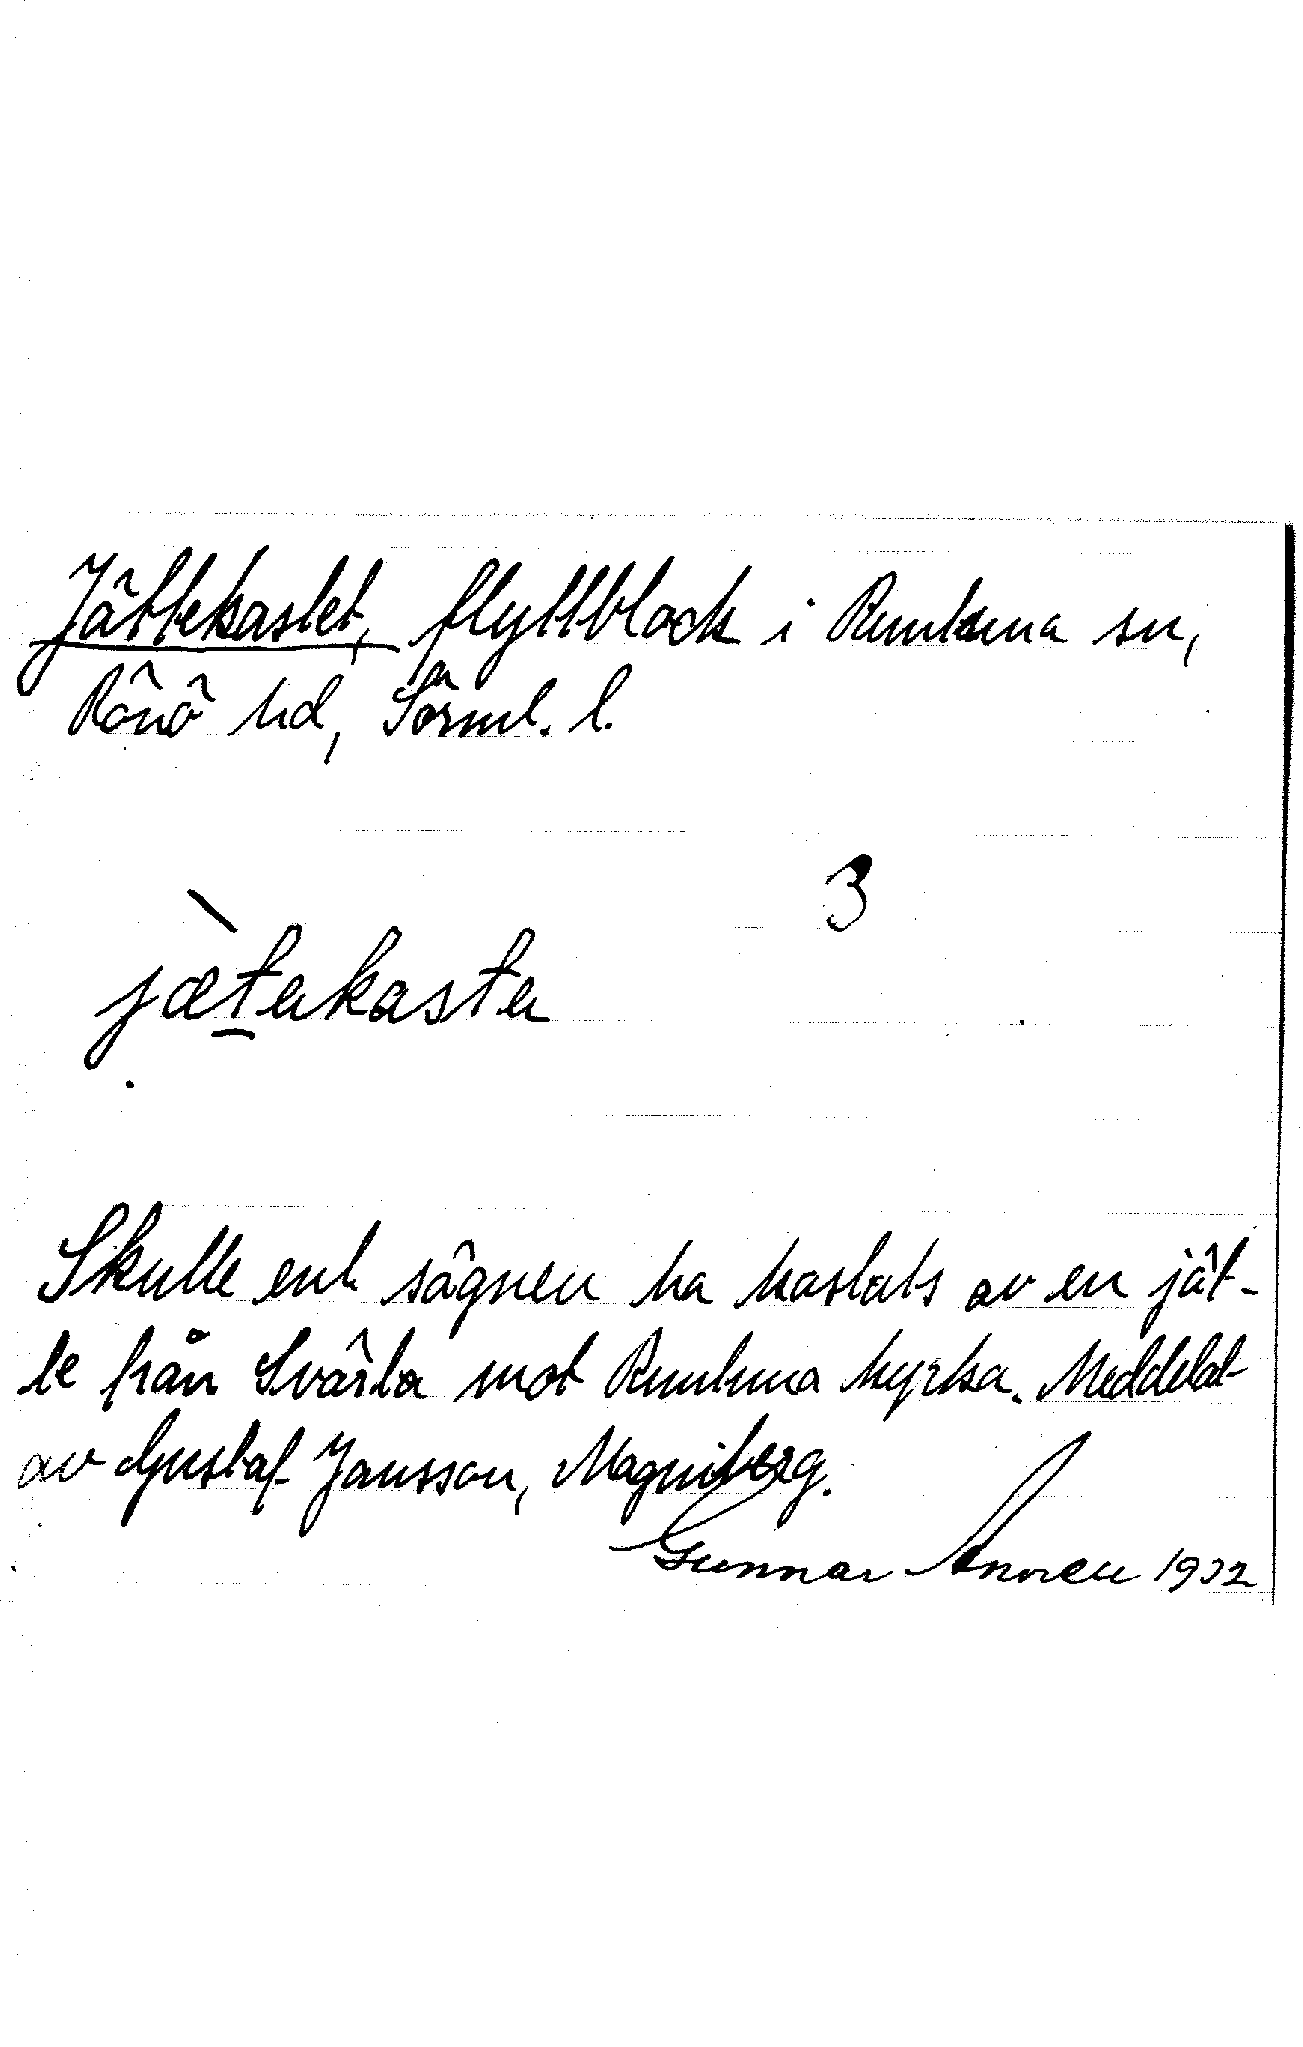 Jättekastet, flyttblock i Runtuna sn,
Rönö hd, Sörml. l.
3
jætekaste
Skulle enl. sägnen ha kastats av en jät-
te från Svärta mot Runtuna kyrka. Meddelat
av Gustaf Jansson, Magniberg.
Gunnar 1932